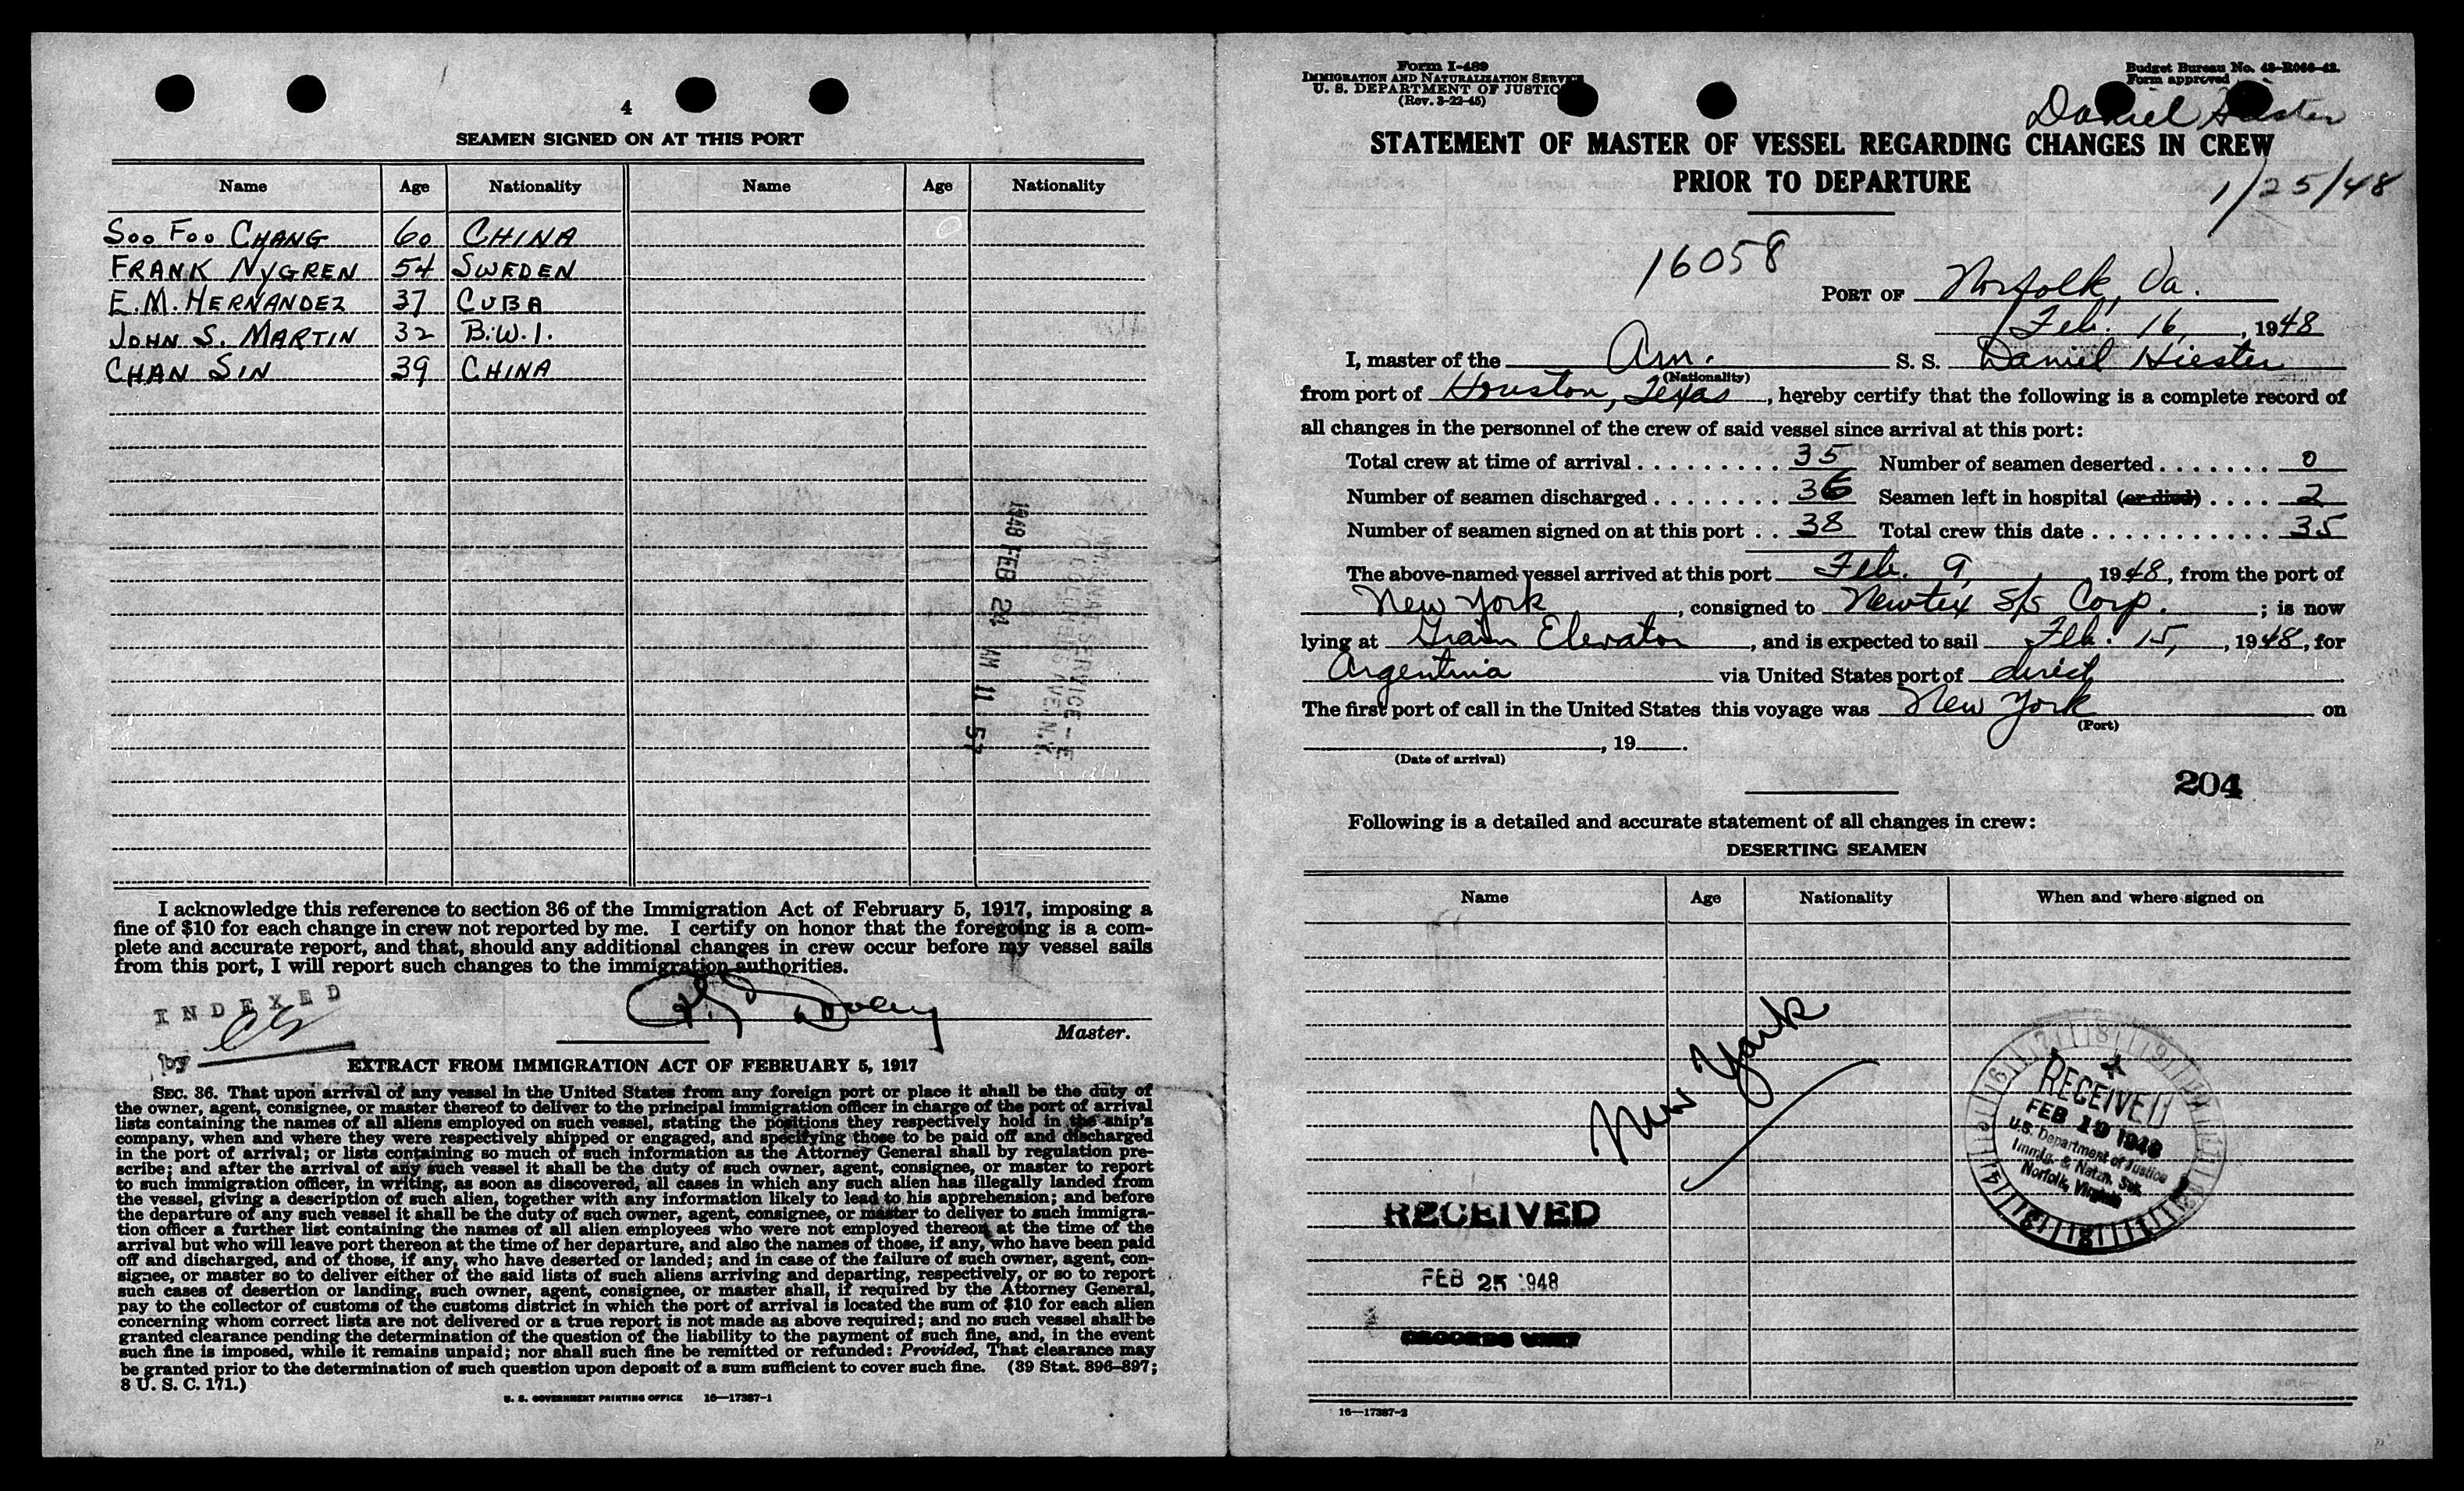 4
SEAMEN SIGNED ON AT THIS PORT
Name Age Nationality Name Age Nationality
Soo Foo CHANG 60 CHINA
FRANK NYGREN 54 SWEDEN
E.M. HERNANDEZ 37 CUBA
JOHN S. MARTIN 32 B.W.I.
CHAN SIN 39 CHINA
1948 FEB 24 AM 11 57
I acknowledge this reference to section 36 of the Immigration Act of February 5, 1917, imposing a
fine of $10 for each change in crew not reported by me. I certify on honor that the foregoing is a com-
plete and accurate report, and that, should any additional changes in crew occur before my vessel sails
from this port, I will report such changes to the immigration authorities.
INDEXED
by
Master.
EXTRACT FROM IMMIGRATION ACT OF FEBRUARY 5, 1917
SEC. 36. That upon arrival of any vessel in the United States from any foreign port or place it shall be the duty of
the owner, agent, consignee, or master thereof to deliver to the principal immigration officer in charge of the port of arrival
lists containing the names of all aliens employed on such vessel, stating the positions they respectively hold in the ship's
company, when and where they were respectively shipped or engaged, and specifying those to be paid off and discharged
in the port of arrival; or lists containing so much of such information as the Attorney General shall by regulation pre-
scribe; and after the arrival of any such vessel it shall be the duty of such owner, agent, consignee, or master to report
to such immigration officer, in writing, as soon as discovered, all cases in which any such alien has illegally landed from
the vessel, giving a description of such alien, together with any information likely to lead to his apprehension; and before
the departure of any such vessel it shall be the duty of such owner, agent, consignee, or master to deliver to such immigra-
tion officer a further list containing the names of all alien employees who were not employed thereon at the time of the
arrival but who will leave port thereon at the time of her departure, and also the names of those, if any, who have been paid
off and discharged, and of those, if any, who have deserted or landed; and in case of the failure of such owner, agent, con-
signee, or master so to deliver either of the said lists of such aliens arriving and departing, respectively, or so to report
such cases of desertion or landing, such owner, agent, consignee, or master shall, if required by the Attorney General,
pay to the collector of customs of the customs district in which the port of arrival is located the sum of $10 for each alien
concerning whom correct lists are not delivered or a true report is not made as above required; and no such vessel shall be
granted clearance pending the determination of the question of the liability to the payment of such fine, and, in the event
such fine is imposed, while it remains unpaid; nor shall such fine be remitted or refunded: Provided, That clearance may
be granted prior to the determination of such question upon deposit of a sum sufficient to cover such fine. (39 Stat. 896-897;
8 U. S. C. 171.)
U. S. GOVERNMENT PRINTING OFFICE 16—17387-1
Form I-489
IMMIGRATION AND NATURALIZATION SERVICE
U. S. DEPARTMENT OF JUSTIC
(Rev. 3-22-45)
Budget Bureau No. 43-R066-42.
Form approved
Daniel Hiester
STATEMENT OF MASTER OF VESSEL REGARDING CHANGES IN CREW
PRIOR TO DEPARTURE
1/25/48
16058
PORT OF Norfolk, Va.
Feb. 16, 1948
I, master of the Am. S. S. Daniel Hiester
(Nationality)
from port of Houston, Texas, hereby certify that the following is a complete record of
all changes in the personnel of the crew of said vessel since arrival at this port:
Total crew at time of arrival 35 Number of seamen deserted 0
Number of seamen discharged 36 Seamen left in hospital (or died) 2
Number of seamen signed on at this port 38 Total crew this date 35
The above-named vessel arrived at this port Feb. 9, 1948, from the port of
New York, consigned to Newtex S/S Corp.; is now
lying at Grain Elevator, and is expected to sail Feb. 15, 1948, for
Argentina via United States port of direct
The first port of call in the United States this voyage was New York on
(Port)
, 19 .
(Date of arrival)
204
Following is a detailed and accurate statement of all changes in crew:
DESERTING SEAMEN
Name Age Nationality When and where signed on
New York
RECEIVED
FEB 19 1948
U.S. Department of Justice
Immig. & Natzn. Ser.
Norfolk, Virginia
RECEIVED
FEB 25 1948
RECORDS UNIT
16—17387-2